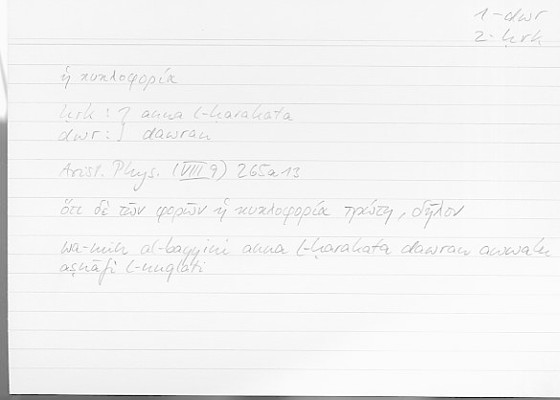 1 - dwr
2 - ḥrk
ἡ κυκλοφορία
ḥrk : } anna l-ḥarakata
dwr : } dawran
Arist. Phys. (VIII 9) 265a13
ὅτι δὲ τῶν φορῶν ἡ κυκλοφορία πρώτη, δῆλον
wa-mina al-bayyini anna l-ḥarakata dawran awwalu
aṣnāfi l-nuqlati